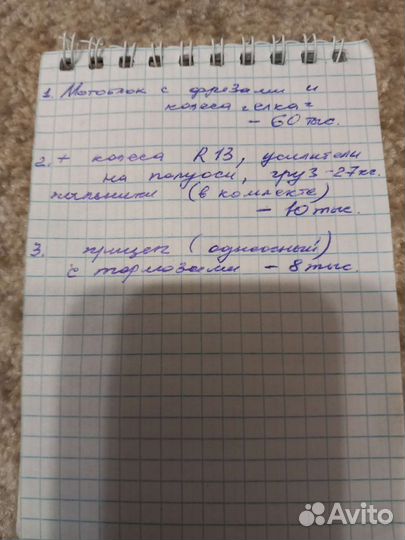 1. Мотоблок с фрезами и
колеса "елка"
- 60 тыс.
2. + колеса R13, усилители
на полуоси, груз -27кг.
пыльники (в комплекте)
- 10 тыс.
3. прицеп (одноосный)
с тормозами - 8 тыс.
Avito